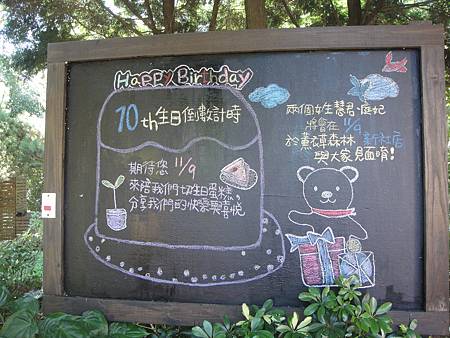 Happy Birthday
10th生日倒數計時
期待您 11/9
來陪我們切生日蛋糕,
分享我們的快樂與喜悅
兩個女生慧君·庭妃
將會在 11/9
於薰衣草森林 新社店
與大家見面唷!